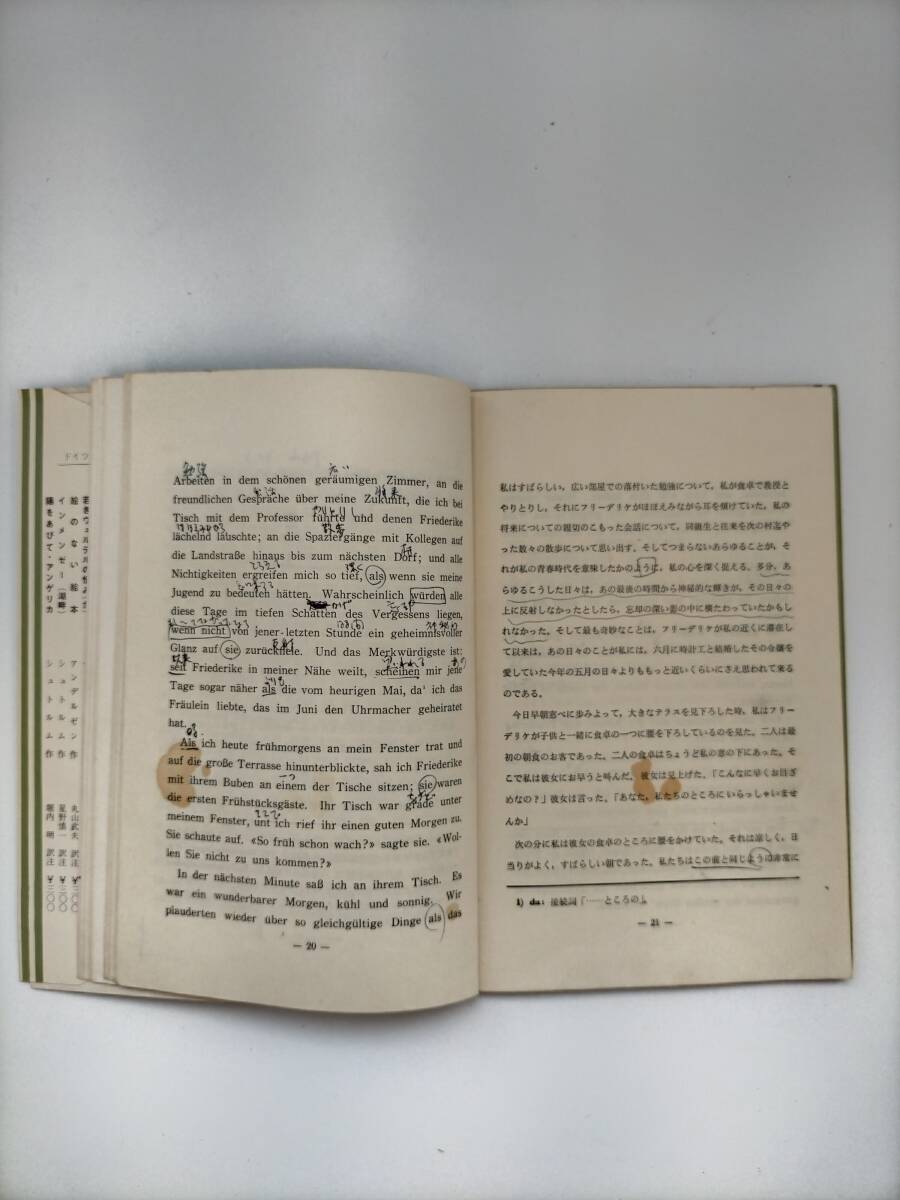 ドイツ
絵のない絵本 アンデルゼン作 丸山武夫 訳注
インメンゼー(湖畔) シュトルム作 星野慎一 訳注
陽をあびて・アンゲリカ シュトルム作 堀内明 訳注
勉強 広い
Arbeiten in dem schönen geräumigen Zimmer, an die
将来
freundlichen Gespräche über meine Zukunft, die ich bei
Tisch mit dem Professor führte und denen Friederike
lächelnd lauschte; an die Spaziergänge mit Kollegen auf
die Landstraße hinaus bis zum nächsten Dorf; und alle
Nichtigkeiten ergreifen mich so tief, als wenn sie meine
Jugend zu bedeuten hätten. Wahrscheinlich würden alle
diese Tage im tiefen Schatten des Vergessens liegen,
wenn nicht von jener letzten Stunde ein geheimnisvoller
Glanz auf sie zurückfiele. Und das Merkwürdigste ist:
seit Friederike in meiner Nähe weilt, scheinen mir jene
Tage sogar näher als die vom heurigen Mai, da¹ ich das
Fräulein liebte, das im Juni den Uhrmacher geheiratet
hat.
Als ich heute frühmorgens an mein Fenster trat und
auf die große Terrasse hinunterblickte, sah ich Friederike
mit ihrem Buben an einem der Tische sitzen; sie waren
die ersten Frühstücksgäste. Ihr Tisch war grade unter
meinem Fenster, und ich rief ihr einen guten Morgen zu.
Sie schaute auf. «So früh schon wach?» sagte sie. «Wol-
len Sie nicht zu uns kommen?»
In der nächsten Minute saß ich an ihrem Tisch. Es
war ein wunderbarer Morgen, kühl und sonnig. Wir
plauderten wieder über so gleichgültige Dinge als das
— 20 —
私はすばらしい、広い部屋での落付いた勉強について。私が食卓で教授と
やりとりし、それにフリーデリケがほほえみながら耳を傾けていた。私の
将来についての親切のこもった会話について、同級生と往来を次の村迄や
った数々の散歩について思い出す。そしてつまらないあらゆることが、そ
れが私の青春時代を意味したかのように、私の心を深く捉える。多分、あ
らゆるこうした日々は、あの最後の時間から神秘的な輝きが、その日々の
上に反射しなかったとしたら、忘却の深い影の中に横たわっていたかもし
れなかった。そして最も奇妙なことは、フリーデリケが私の近くに滞在し
て以来は、あの日々のことが私には、六月に時計工と結婚したその令嬢を
愛していた今年の五月の日々よりももっと近いくらいにさえ思われて来る
のである。
今日早朝窓べに歩みよって、大きなテラスを見下ろした時、私はフリー
デリケが子供と一緒に食卓の一つに腰を下ろしているのを見た。二人は最
初の朝食のお客であった。二人の食卓はちょうど私の窓の下にあった。そ
こで私は彼女にお早うと呼んだ。彼女は見上げた。「こんなに早くお目ざ
めなの?」彼女は言った。「あなた、私たちのところにいらっしゃいませ
んか」
次の分に私は彼女の食卓のところに腰をかけていた。それは涼しく、日
当りがよく、すばらしい朝であった。私たちはこの前と同じように非常に
1) da: 接続詞「……ところの」。
— 21 —